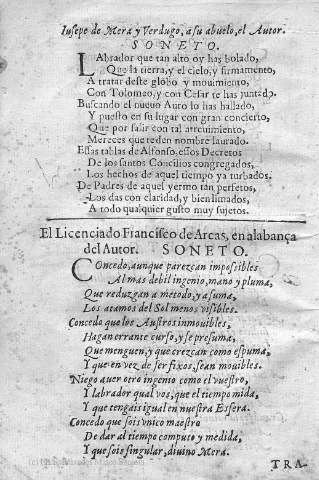 Iusepe de Mera y Verdugo, a su abuelo, el Autor.
SONETO.
LAbrador que tan alto oy has bolado,
Que la tierra, y el cielo, y firmamento,
A tratar deste globo y mouimiento,
Con Tolomeo, y con Cesar te has juntado.
Buscando el nueuo Auto lo has hallado,
Y puesto en su lugar con gran concierto,
Que por salir con tal atreuimiento,
Mereces que te den nombre laurado.
Essas tablas de Alfonso, essos Decretos
De los santos Concilios congregados,
Los hechos de aquel tiempo ya turbados.
De Padres de aquel yermo tan perfetos,
Los das con claridad, y bien limados,
A todo qualquier gusto muy sujetos.
El Licenciado Francisco de Arcas, en alabança
del Autor. SONETO.
COncedo, aunque parezcan impossibles
Al mas debil ingenio, mano y pluma,
Que reduzgan a metodo, y a suma,
Los atamos del Sol menos visibles.
Concedo que los Austros inmouibles,
Hagan errante curso, y se presuma,
Que menguen, y que crezcan como espuma,
Y que en vez de ser fixos, sean mouibles.
Niego auer otro ingenio como el vuestro,
Y labrador qual vos, que el tiempo mida,
Y que tengais igual en nuestra Esfera.
Concedo que sois vnico maestro
De dar al tiempo computo y medida,
Y que sois singular, diuino Mera.
TRA-